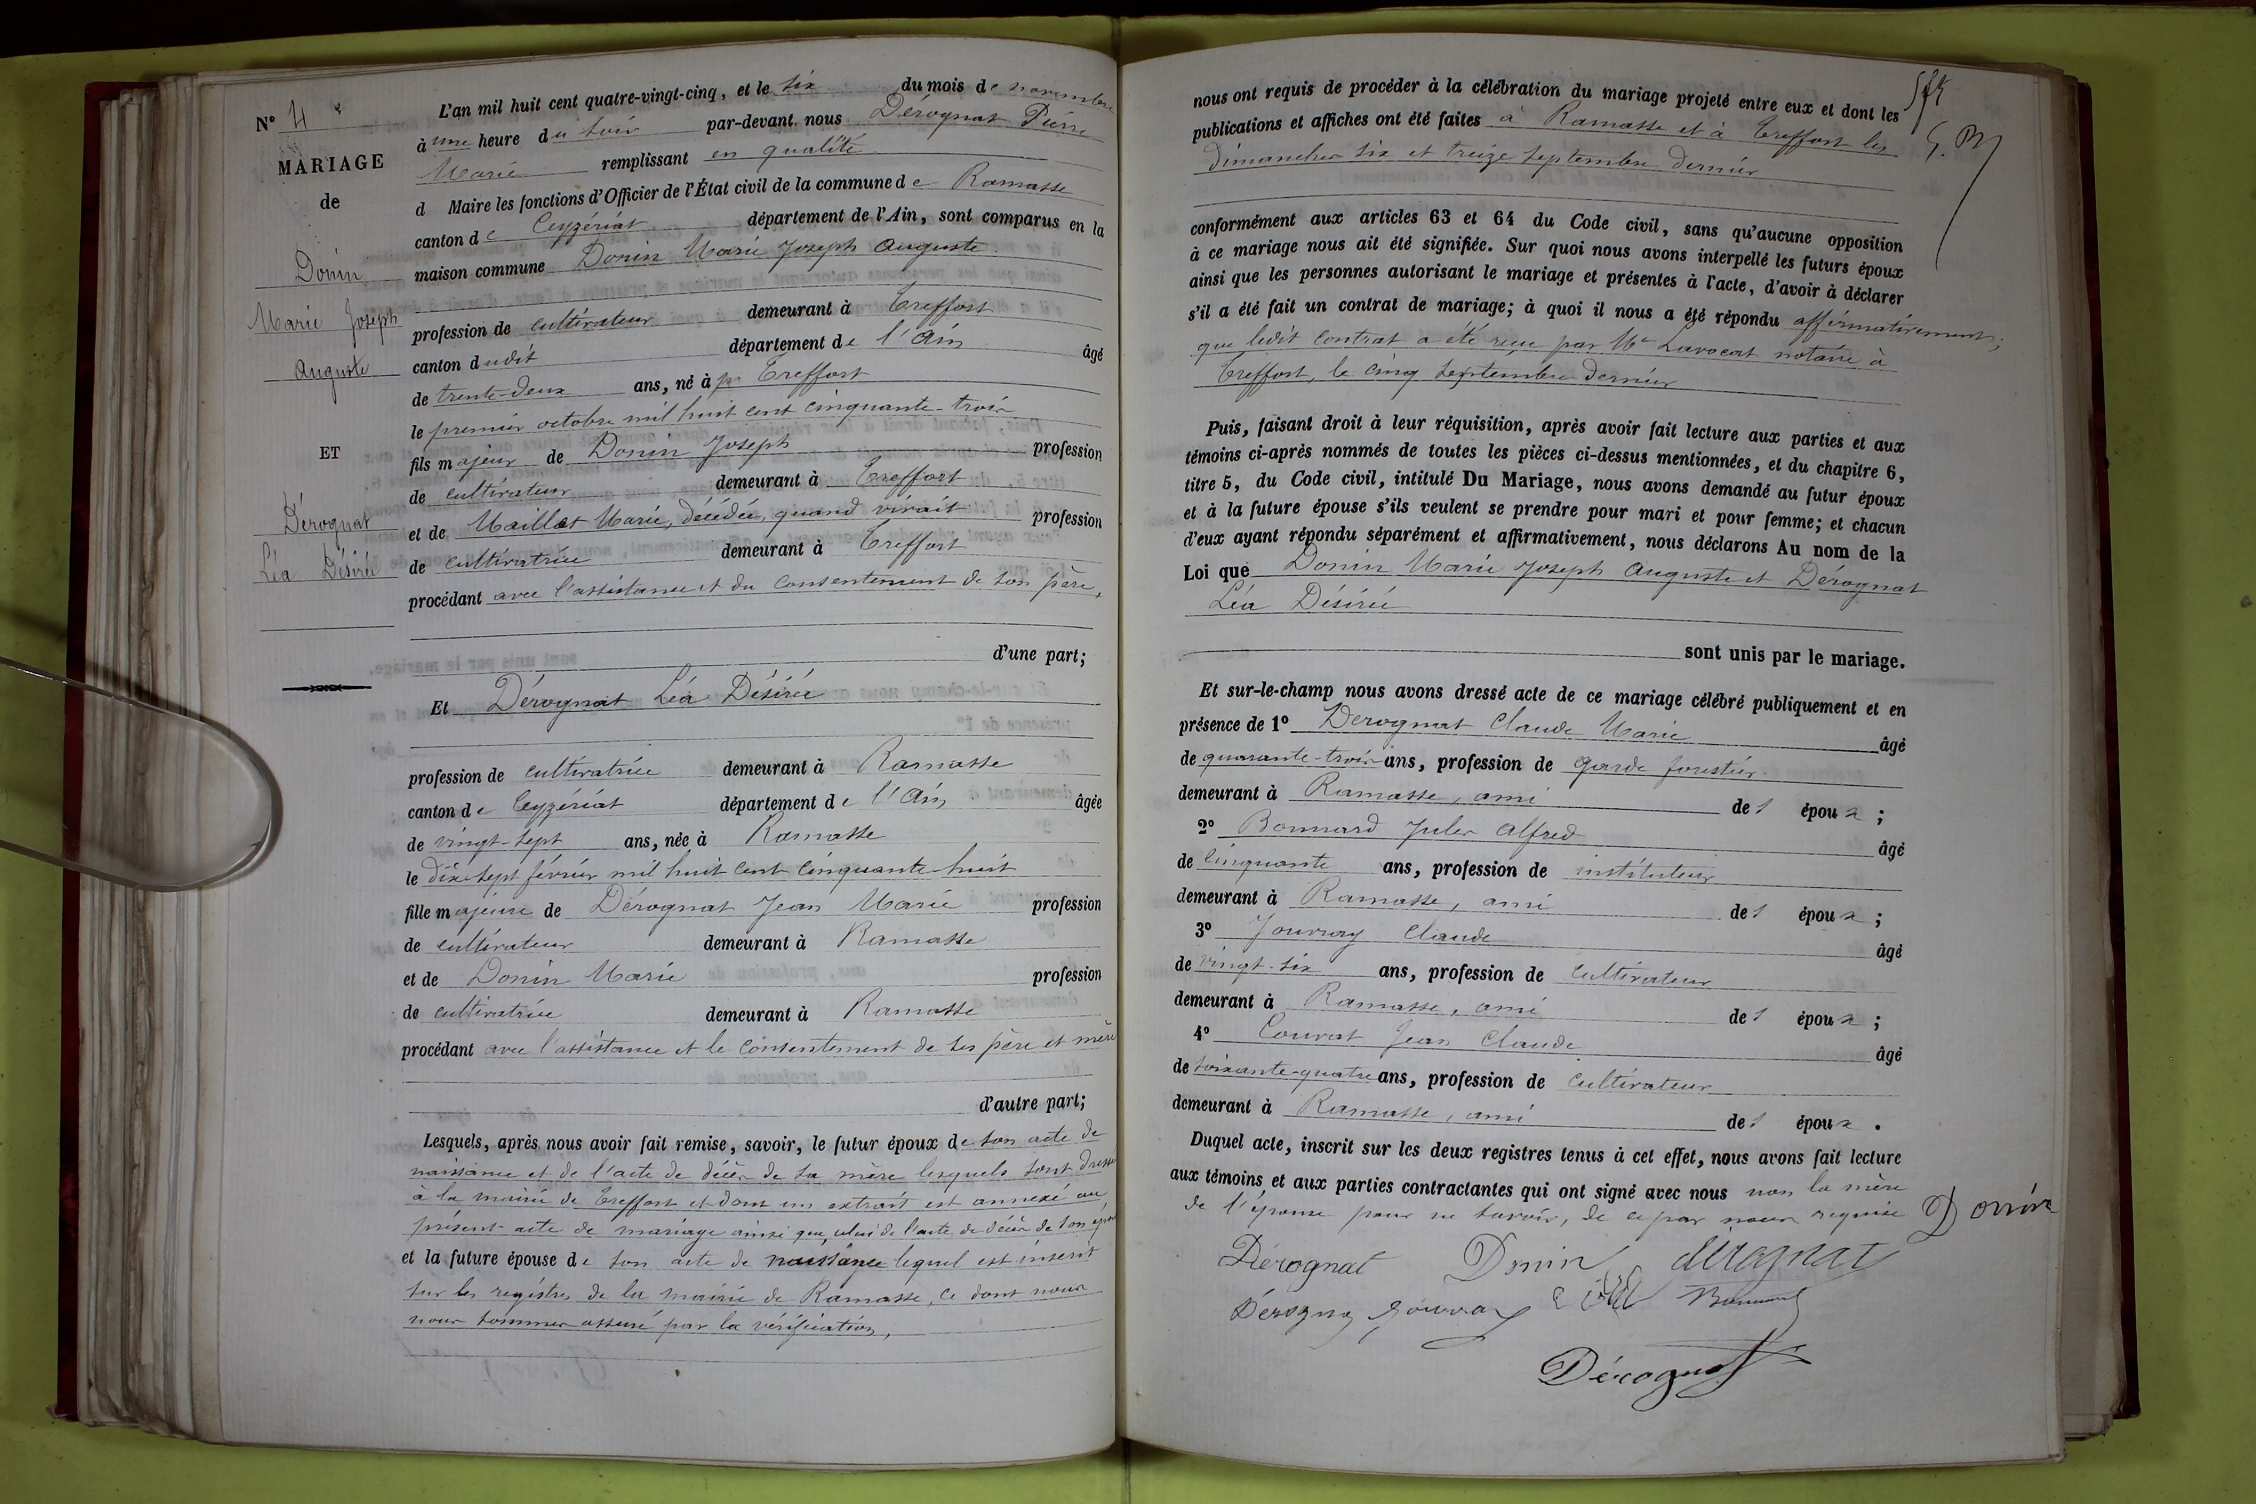 N° 4
MARIAGE
de
Donin
Marie Joseph
Auguste
ET
Dérognat
Léa Désirée
L'an mil huit cent quatre-vingt-cinq, et le six du mois de novembre
à une heure du soir par-devant nous Dérognat Pierre
Marie remplissant en qualité
d Maire les fonctions d'Officier de l'État civil de la commune de Ramasse
canton de Ceyzériat département de l'Ain, sont comparus en la
maison commune Donin Marie Joseph Auguste
profession de cultivateur demeurant à Treffort
canton dudit département de l'Ain âgé
de trente-deux ans, né à Treffort
le premier octobre mil huit cent cinquante-trois
fils majeur de Donin Joseph profession
de cultivateur demeurant à Treffort
et de Maillet Marie, décédée, quand vivait profession
de cultivatrice demeurant à Treffort
procédant avec l'assistance et du consentement de son père,
d'une part;
Et Dérognat Léa Désirée
profession de cultivatrice demeurant à Ramasse
canton de Ceyzériat département de l'Ain âgée
de vingt-sept ans, née à Ramasse
le dix-sept février mil huit cent cinquante-huit
fille majeure de Dérognat Jean Marie profession
de cultivateur demeurant à Ramasse
et de Donin Marie profession
de cultivatrice demeurant à Ramasse
procédant avec l'assistance et le consentement de ses père et mère
d'autre part;
Lesquels, après nous avoir fait remise, savoir, le futur époux de son acte de
naissance et de l'acte de décès de sa mère lesquels sont dressés
à la mairie de Treffort et dont un extrait est annexé au
présent acte de mariage ainsi que celui de l'acte de décès de son
et la future épouse de son acte de naissance lequel est inscrit
sur les registres de la mairie de Ramasse, ce dont nous
nous sommes assuré par la vérification,
nous ont requis de procéder à la célébration du mariage projeté entre eux et dont les
publications et affiches ont été faites à Ramasse et à Treffort les
dimanches six et treize septembre dernier
conformément aux articles 63 et 64 du Code civil, sans qu'aucune opposition
à ce mariage nous ait été signifiée. Sur quoi nous avons interpellé les futurs époux
ainsi que les personnes autorisant le mariage et présentes à l'acte, d'avoir à déclarer
s'il a été fait un contrat de mariage; à quoi il nous a été répondu affirmativement,
que ledit contrat a été reçu par Me Lavocat notaire à
Treffort, le cinq septembre dernier
Puis, faisant droit à leur réquisition, après avoir fait lecture aux parties et aux
témoins ci-après nommés de toutes les pièces ci-dessus mentionnées, et du chapitre 6,
titre 5, du Code civil, intitulé Du Mariage, nous avons demandé au futur époux
et à la future épouse s'ils veulent se prendre pour mari et pour femme; et chacun
d'eux ayant répondu séparément et affirmativement, nous déclarons Au nom de la
Loi que Donin Marie Joseph Auguste et Dérognat
Léa Désirée
sont unis par le mariage.
Et sur-le-champ nous avons dressé acte de ce mariage célébré publiquement et en
présence de 1° Derognat Claude Marie âgé
de quarante-trois ans, profession de garde forestier
demeurant à Ramasse, ami des époux;
2° Bonnard Jules Alfred âgé
de cinquante ans, profession de instituteur
demeurant à Ramasse, ami des époux;
3° Jouvray Claude âgé
de vingt-six ans, profession de cultivateur
demeurant à Ramasse, ami des époux;
4° Couvat Jean Claude âgé
de soixante-quatre ans, profession de cultivateur
demeurant à Ramasse, ami des époux.
Duquel acte, inscrit sur les deux registres tenus à cet effet, nous avons fait lecture
aux témoins et aux parties contractantes qui ont signé avec nous non la mère
de l'épouse pour ne savoir, de ce par nous requise Donin
Dérognat Donin derognat
Jouvray Bonnard
Dérognat